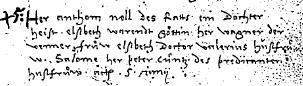 Her anthoni noll des Ratts ein Dochter
heist. elsbeth warendt göttin her wagner der
venner frůw elsbeth Doctor valerius hůsfrůw
w. Salome her peter Cůntz des predicanten
hůsfrůw. actu . 5 . Junij